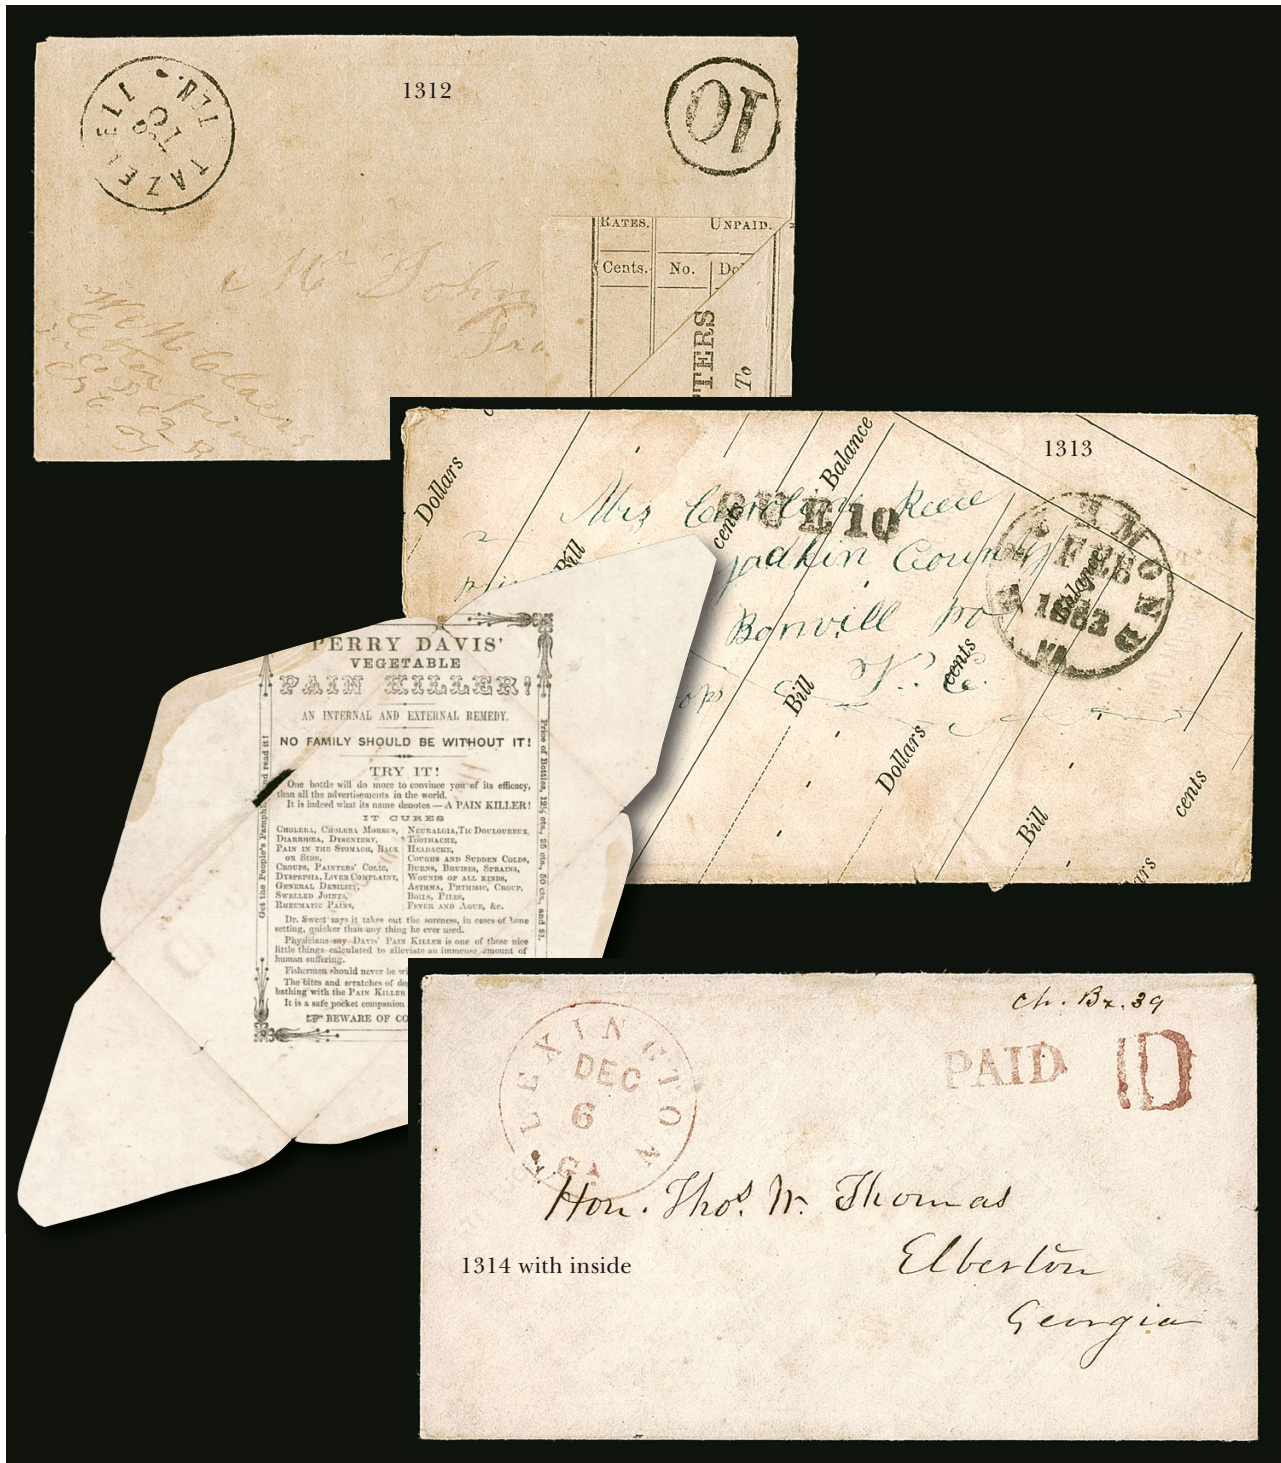 1312
TAZEWELL
TEN.
10
RATES. UNPAID.
Cents. No. Dol
TTERS
To
Mr John
Wm M
1313
Dollars
Balance
DUE 10
cents
Bill
Mrs Caroline Reece
Yadkin County
Bonvill po
N. C.
RICHMOND
FEB
1862
VA.
Balance
cents
Bill
Dollars
Bill
cents
ars
PERRY DAVIS'
VEGETABLE
PAIN KILLER!
AN INTERNAL AND EXTERNAL REMEDY.
NO FAMILY SHOULD BE WITHOUT IT!
TRY IT!
One bottle will do more to convince you of its efficacy,
than all the advertisements in the world.
It is indeed what its name denotes — A PAIN KILLER!
IT CURES
CHOLERA, CHOLERA MORBUS,
DIARRHŒA, DYSENTERY,
PAIN IN THE STOMACH, BACK
OR SIDE,
CROUPS, PAINTERS' COLIC,
DYSPEPSIA, LIVER COMPLAINT,
GENERAL DEBILITY,
SWELLED JOINTS,
RHEUMATIC PAINS,
NEURALGIA, TIC DOULOUREUX,
TOOTHACHE,
HEADACHE,
COUGHS AND SUDDEN COLDS,
BURNS, BRUISES, SPRAINS,
WOUNDS OF ALL KINDS,
ASTHMA, PHTHISIC, CROUP,
BOILS, PILES,
FEVER AND AGUE, &c.
Dr. Sweet says it takes out the soreness, in cases of bone
setting, quicker than any thing he ever used.
Physicians say DAVIS' PAIN KILLER is one of those nice
little things calculated to alleviate an immense amount of
human suffering.
Fishermen should never be wi
The bites and scratches of do
bathing with the PAIN KILLER
It is a safe pocket companion
☞ BEWARE OF CO
Get the People's Pamph and read it!
Price of Bottles, 12½ cts., 25 cts., 50 cts., and $1.
ch. Bx. 39
LEXINGTON
DEC
6
GA
PAID 10
Hon. Thos. W. Thomas
Elberton
Georgia
1314 with inside